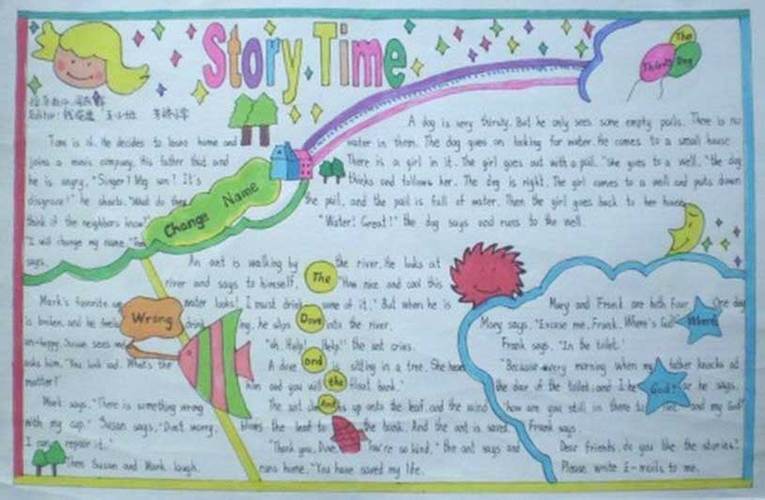 Story Time
The
Thirsty Dog
Editor:
A dog is very thirsty. But he only sees some empty pails. There is no
water in them. The dog goes on looking for water. He comes to a small house
There is a girl in it. The girl goes out with a pail. "She goes to a well," the dog
thinks and follows her. The dog is right. The girl comes to a well and puts down
the pail, and the pail is full of water. Then the girl goes back to her house
"Water! Great!" the dog says and runs to the well.
Change Name
Tom is of. He decides to leave home and
joins a movie company. His father that and
he is angry. "Singer! My son? It's
disgrace!" he shouts. "What do they
think if the neighbors know?"
"I will change my name," Tom
says.
The
Dove
and
the
Ant
An ant is walking by the river. He looks at
river and says to himself, "How nice and cool this
water looks! I must drink some of it." But when he is
drinking, he slips into the river.
"Oh, Help! Help!" the ant cries.
A dove is sitting in a tree. She
him and you will float back."
The ant climbs up onto the leaf and the wind
blows the leaf to the bank. And the ant is saved
"Thank you, Dove. You're so kind," the ant says and
runs home, "You have saved my life.
Wrong
Mark's favorite cup
is broken, and he feels
un-happy. Susan sees and
asks him, "You look sad. What's the
matter?"
Mark says, "There is something wrong
with my cup." Susan says, "Don't worry,
I can repair it."
Then Susan and Mark laugh.
Where
God?
Mary and Frank are both four. One day
Mary says, "Excuse me, Frank. Where's God?"
Frank says, "In the toilet."
"Because every morning when my father knocks at
the door of the toilet, and he says,
"how are you still in there, my God"
Frank says.
Dear friends, do you like the stories?
Please write E-mails to me.